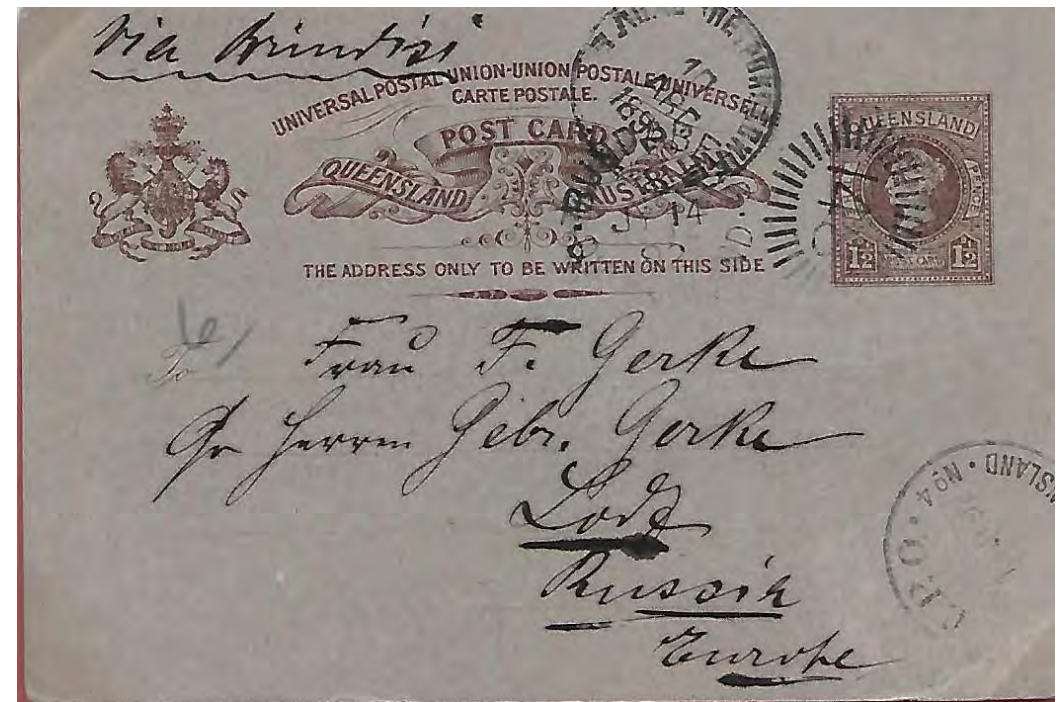 Via Brindisi
UNIVERSAL POSTAL UNION-UNION POSTALE UNIVERSELLE
CARTE POSTALE.
POST CARD
QUEENSLAND AUSTRALIA
THE ADDRESS ONLY TO BE WRITTEN ON THIS SIDE
QUEENSLAND
PENCE
1½ 1½
1892
14
To Frau F. Gerke
Herren Gebr. Gerke
Lodz
Russia
Europe
QUEENSLAND · No 4 ·